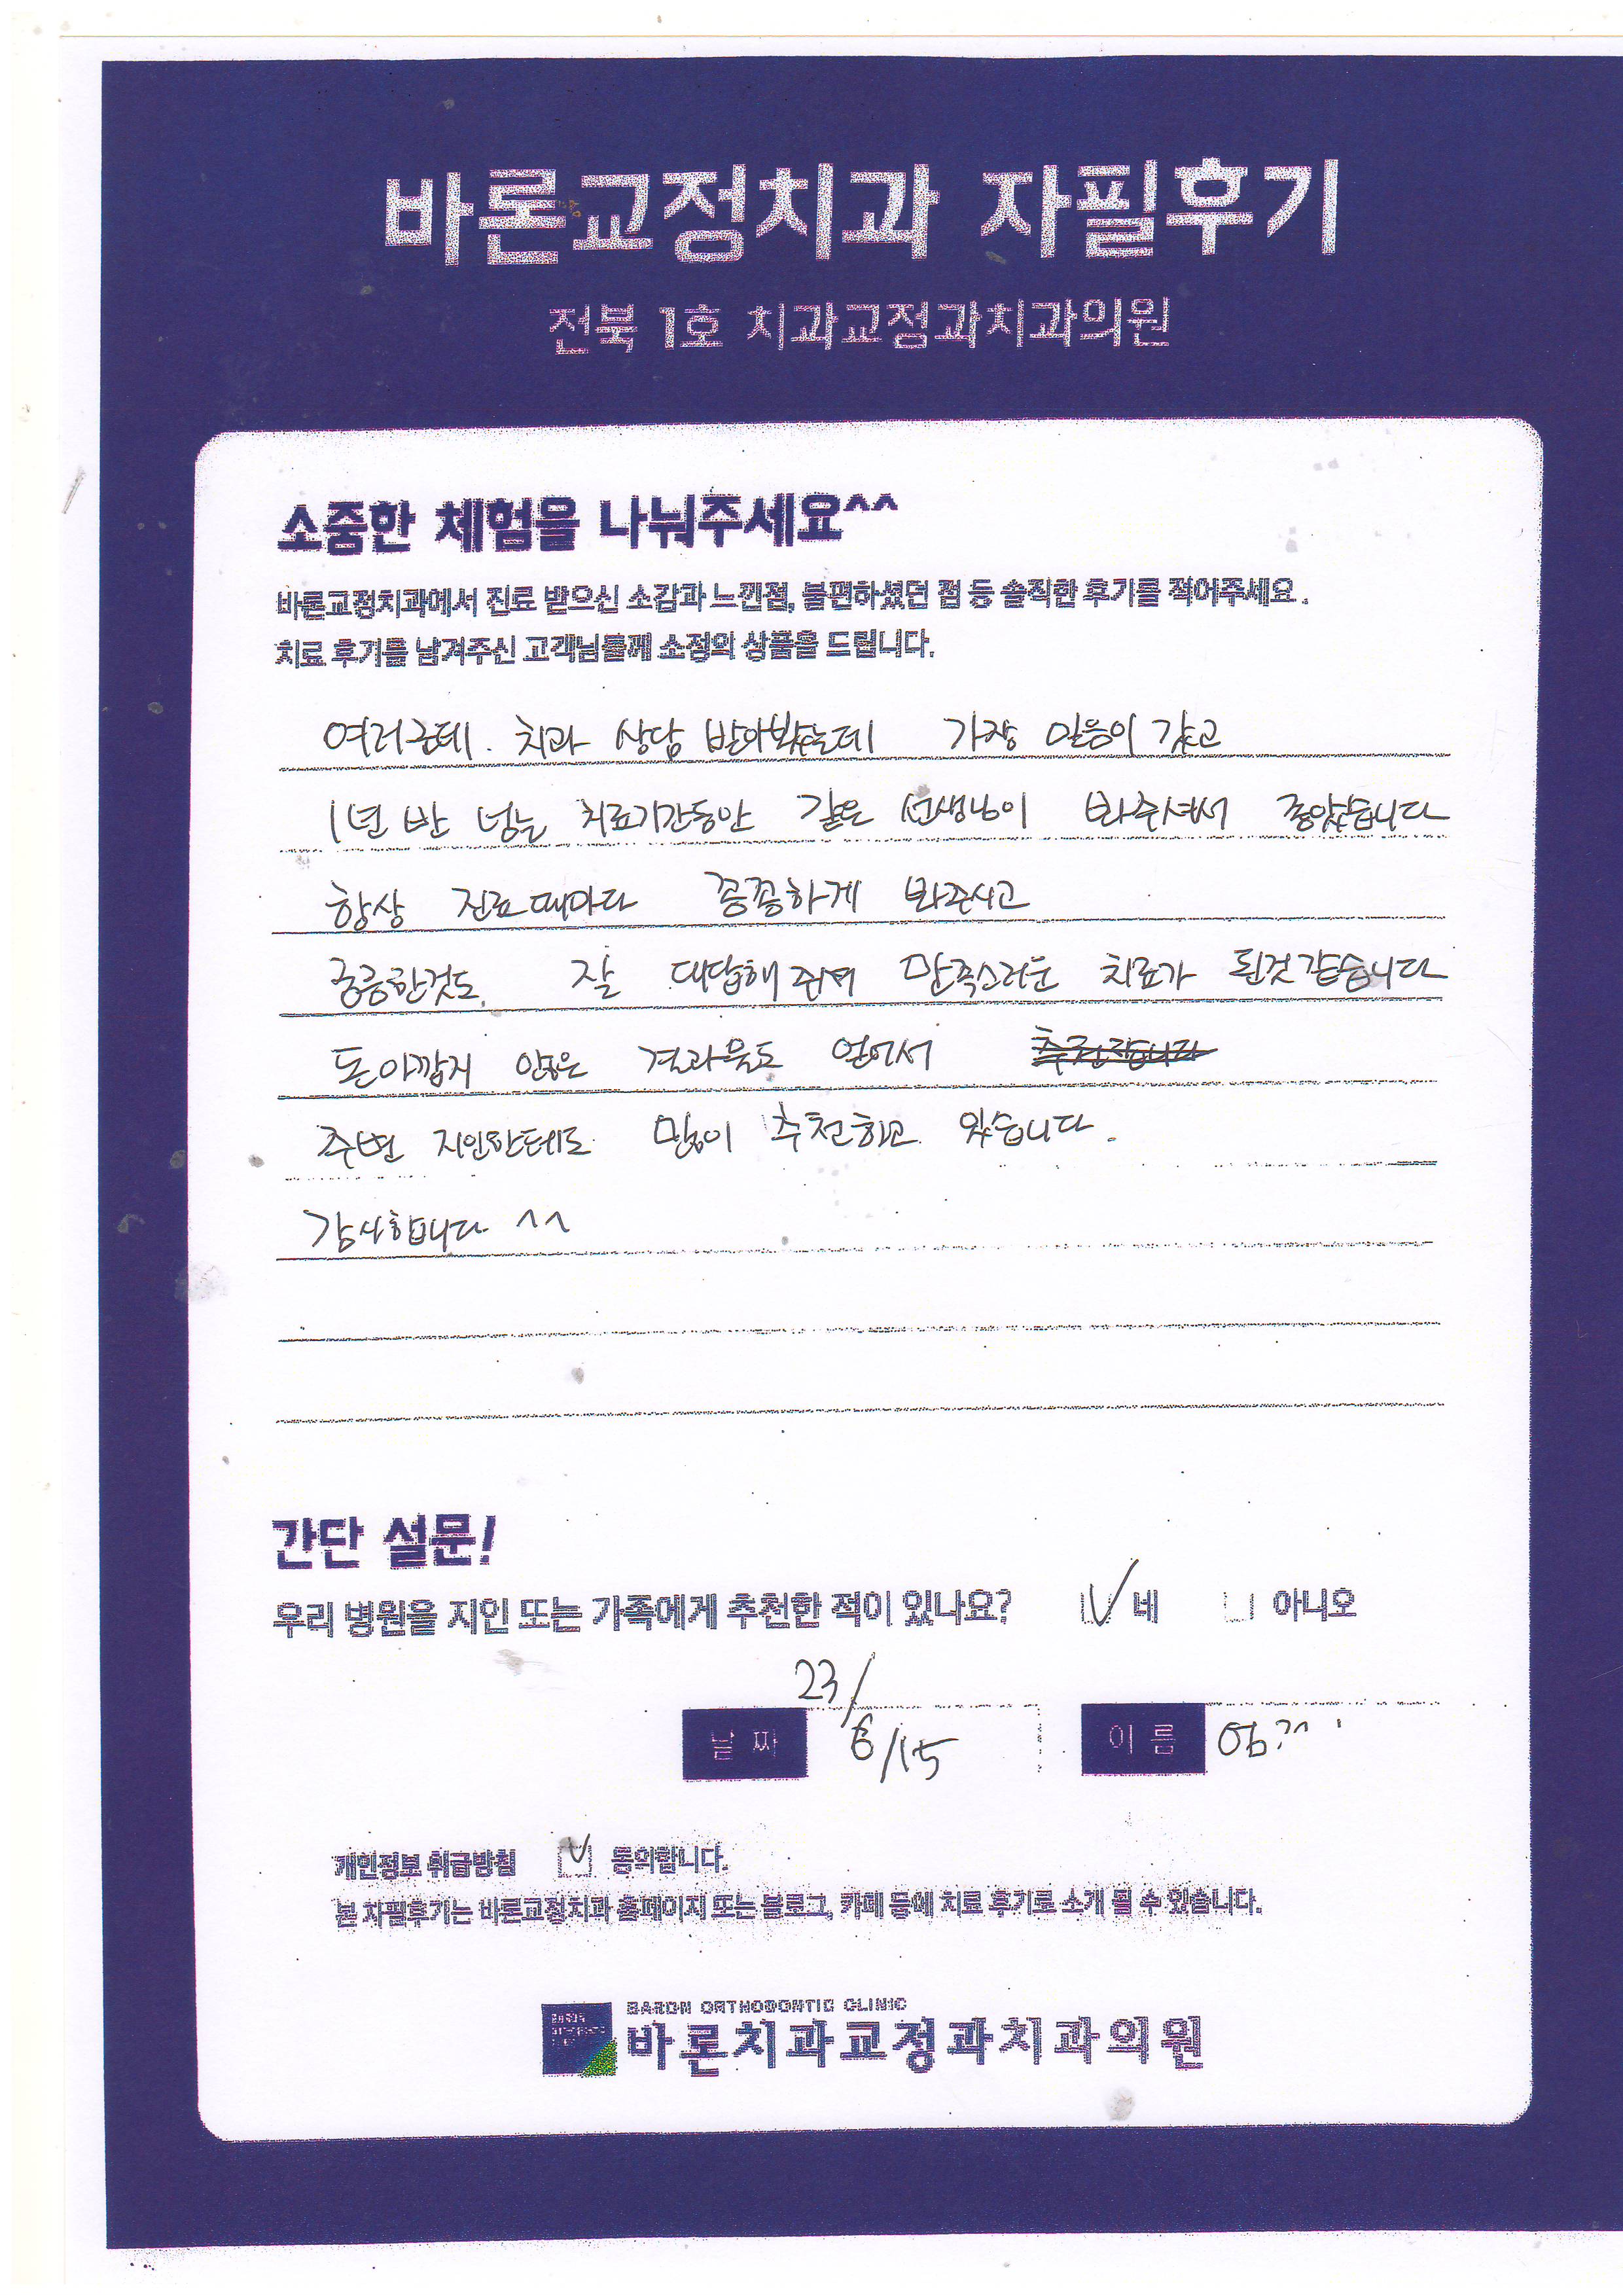 바론교정치과 자필후기
전북 1호 치과교정과치과의원
소중한 체험을 나눠주세요^^
바론교정치과에서 진료 받으신 소감과 느낀점, 불편하셨던 점 등 솔직한 후기를 적어주세요.
치료 후기를 남겨주신 고객님들께 소정의 상품을 드립니다.
여러군데. 치과 상담 받아봤는데 가장 믿음이 갔고
1년 반 넘는 치료기간동안 같은 선생님이 봐주셔서 좋았습니다
항상 진료때마다 꼼꼼하게 봐주시고
궁금한것도 잘 대답해 주셔 만족스러운 치료가 된것 같습니다
돈아깝지 않은 결과물도 얻어서
주변 지인한테도 많이 추천하고 있습니다.
감사합니다 ^^
간단 설문!
우리 병원을 지인 또는 가족에게 추천한 적이 있나요? 네 아니오
23/
날짜 6/15 이름
개인정보 취급방침 동의합니다.
본 자필후기는 바론교정치과 홈페이지 또는 블로그, 카페 등에 치료 후기로 소개 될 수 있습니다.
BARON ORTHODONTIC CLINIC
바론치과교정과치과의원